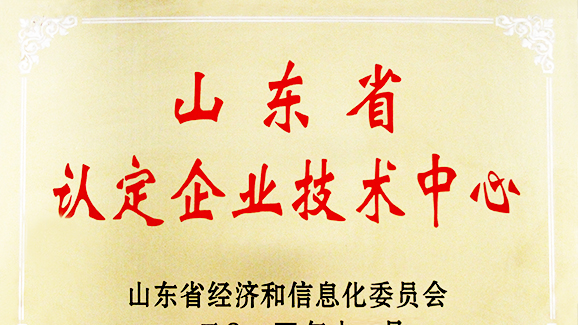 山东省
认定企业技术中心
山东省经济和信息化委员会